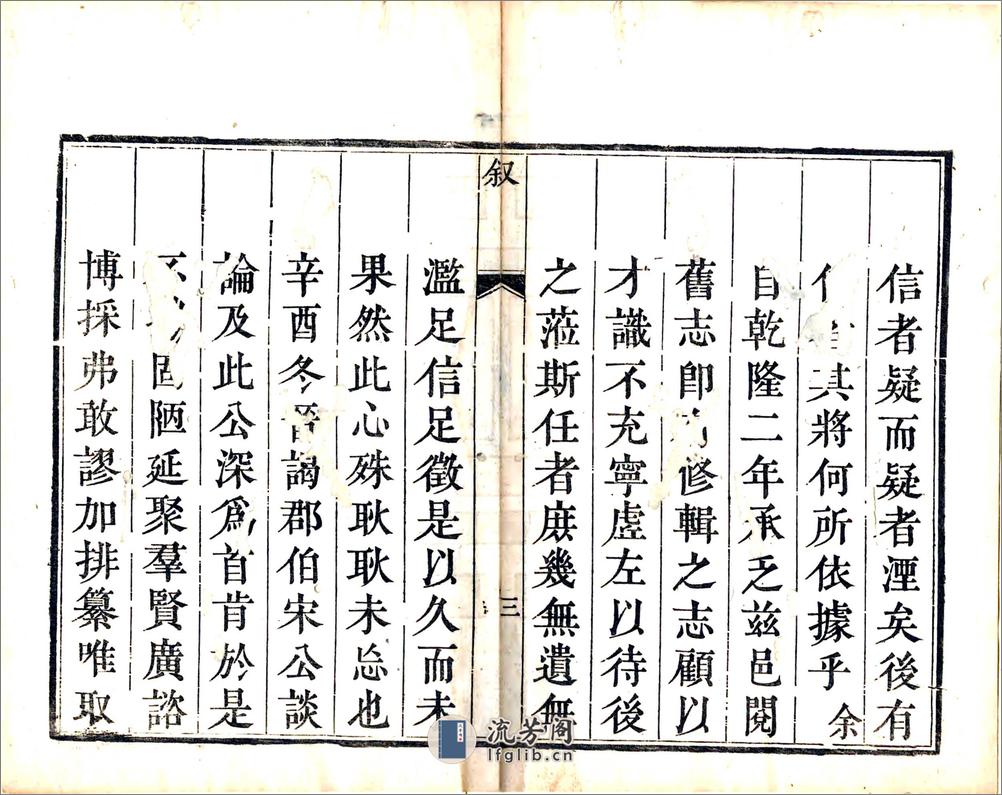 信者疑而疑者湮矣後有
作者其將何所依據乎余
自乾隆二年承乏茲邑閱
舊志卽有修輯之志顧以
才識不充寧虛左以待後
之蒞斯任者庶幾無遺無
叙
三
濫足信足徵是以久而未
果然此心殊耿耿未忘也
辛酉冬晉謁郡伯宋公談
論及此公深爲首肯於是
不 固陋延聚羣賢廣諮
博採弗敢謬加排纂唯取
流芳阁
lfglib.cn